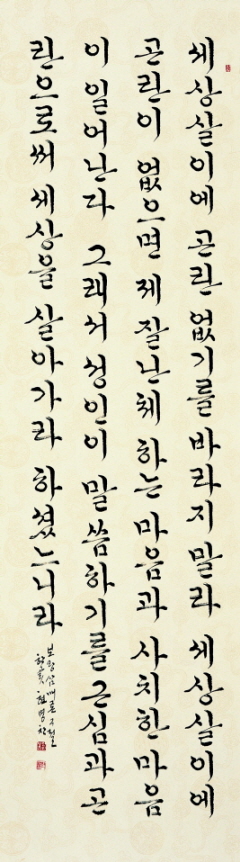 세상살이에 곤란 없기를 바라지 말라 세상살이에
곤란이 없으면 제 잘난체 하는 마음과 사치한 마음
이 일어난다 그래서 성인이 말씀하기를 근심과 곤
란으로써 세상을 살아가라 하셨느니라
보왕삼매론 구절